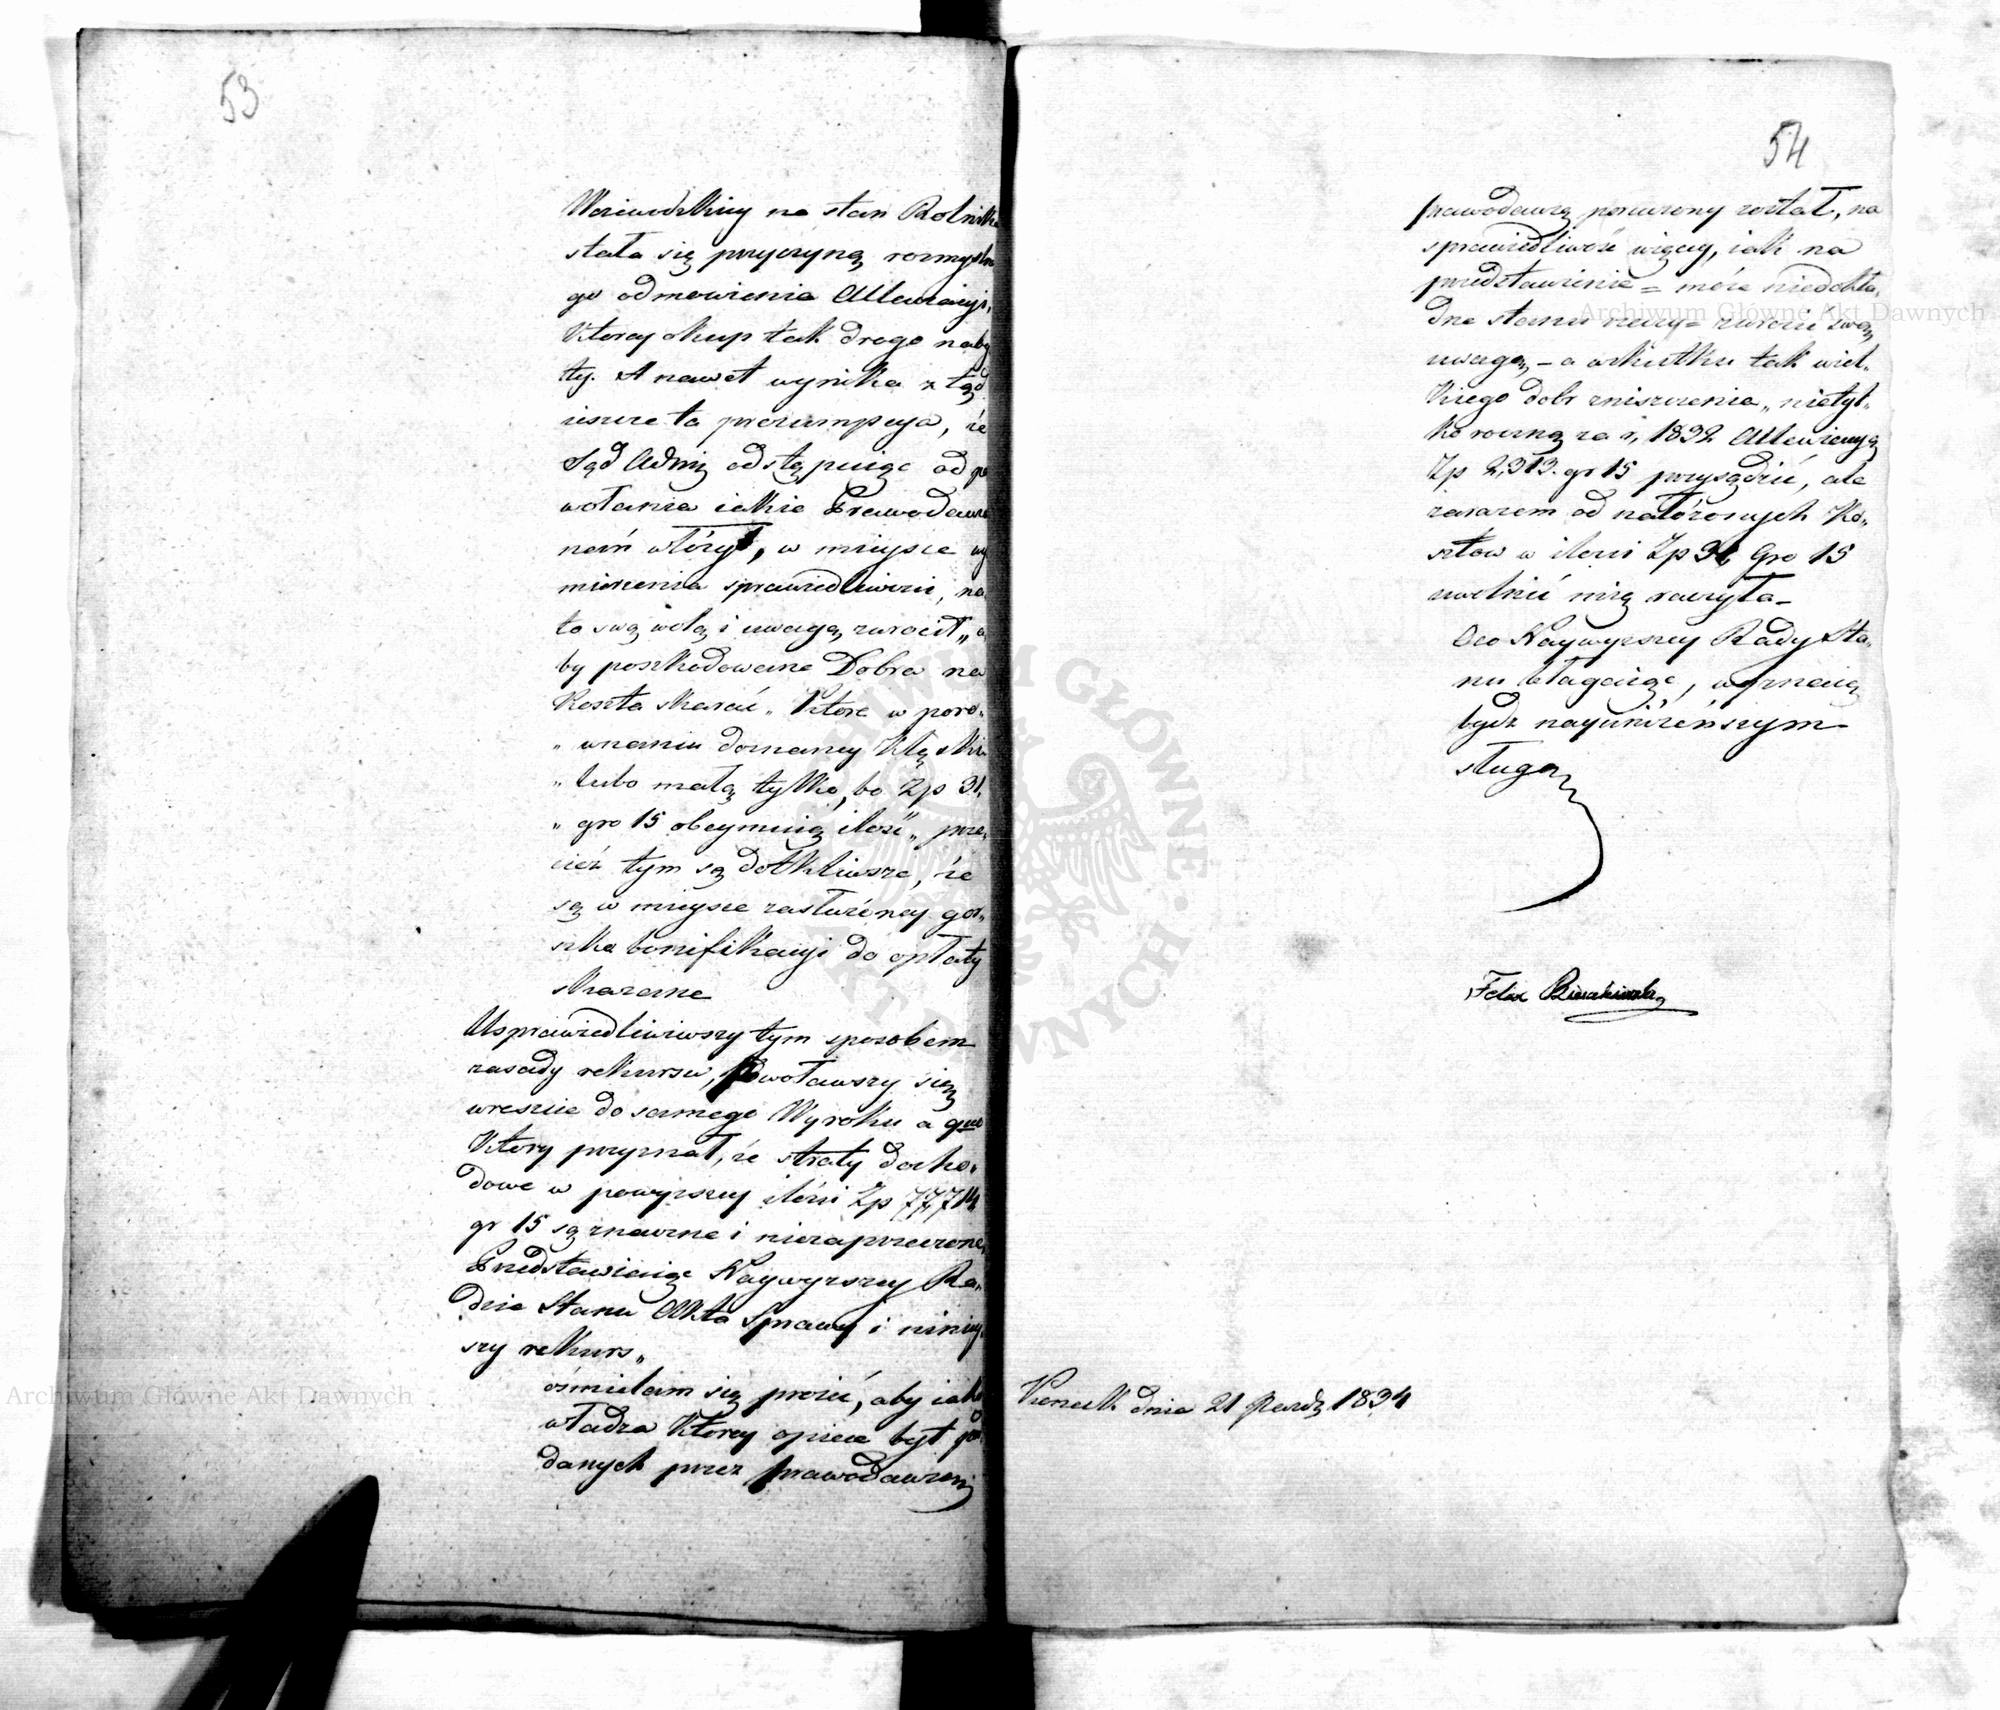 53
Woiewodzkiey na stan Rolnika
stała się przyczyną rozmyślne
go odmowienia Allewiacyi,
Ktorey okup tak drogo naby
ty. A nawet wynika z tąd
ieszcze ta prezumpcya, że
Sąd Admij odstępuiąc od po
wołania iakie Prawodawca
nań włożył, w mieysce wy
mierzenia sprawiedliwości, na
to swą wolą i uwagę zwrocił „a
by poszkodowane Dobra na
Koszta skazać „ Ktore w poro„
„ wnaniu doznaney Klęski
„ lubo małą tylko, bo Zp 31,
„ gro 15 obeymuią ilość„ prze„
cież tym są dotkliwsze, że
są w mieysce zasłużoney gor„
szka bonifikacyi do opłaty
skazane
Usprawiedliwiwszy tym sposobem
zasady rekursu, Powoławszy się
wreszcie do samego Wyroku a quo
Ktory przyznał, że straty docho„
dowe w powyzszey ilości Zp 7,714
gr 15 są znaczne i niezaprzeczone,
Przedstawiaiąc Naywyzszey Ra„
dzie Stanu Akta Sprawy i niniey
szy rekurs„
ośmielam się prosić, aby iako
władza Ktorey opiece byt pod
danych przez prawodawczą
54
prawodawcą poruczony został, na
sprawiedliwość więcey, iak na
przedstawienie = może niedokła„
dne stanu rzeczy = zwrocić swą
uwagę, – a wskutku tak wiel„
kiego dobr zniszczenia„ nietyl„
ko roczną za r, 1832 Allewiacyą
Zp 2,313. gr 15 przysądzić, ale
zarazem od nałożonych Ko„
sztow w ilosci Zp 31 Gro 15
uwolnić mię raczyła –
Oco Naywyzszey Rady Sta„
nu błagaiąc, wyznaię
bydz nayuniżeńszym
sługą
Felix
dnia 21 Pazdz 1834
Archiwum Główne Akt Dawnych
Archiwum Główne Akt Dawnych
ARCHIWUM GŁÓWNE AKT DAWNYCH